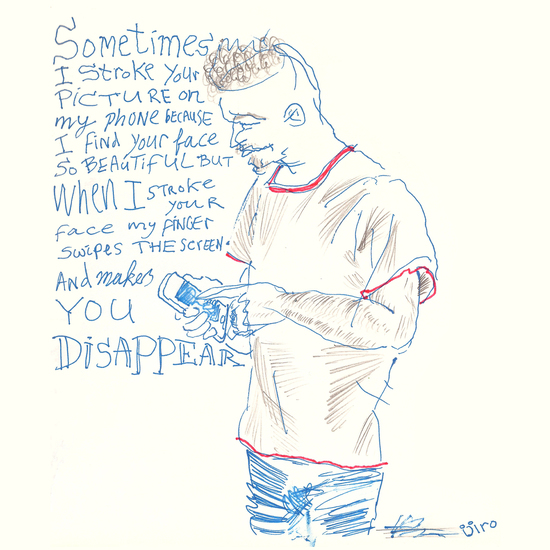 Sometimes
I STROKE YOUR
PICTURE on
my phone BECAUSE
I FIND your face
SO BEAUTIFUL BUT
When I STROKE
YOUR
face my FINGER
SWIPES THE SCREEN.
AND makes
YOU
DISAPPEAR